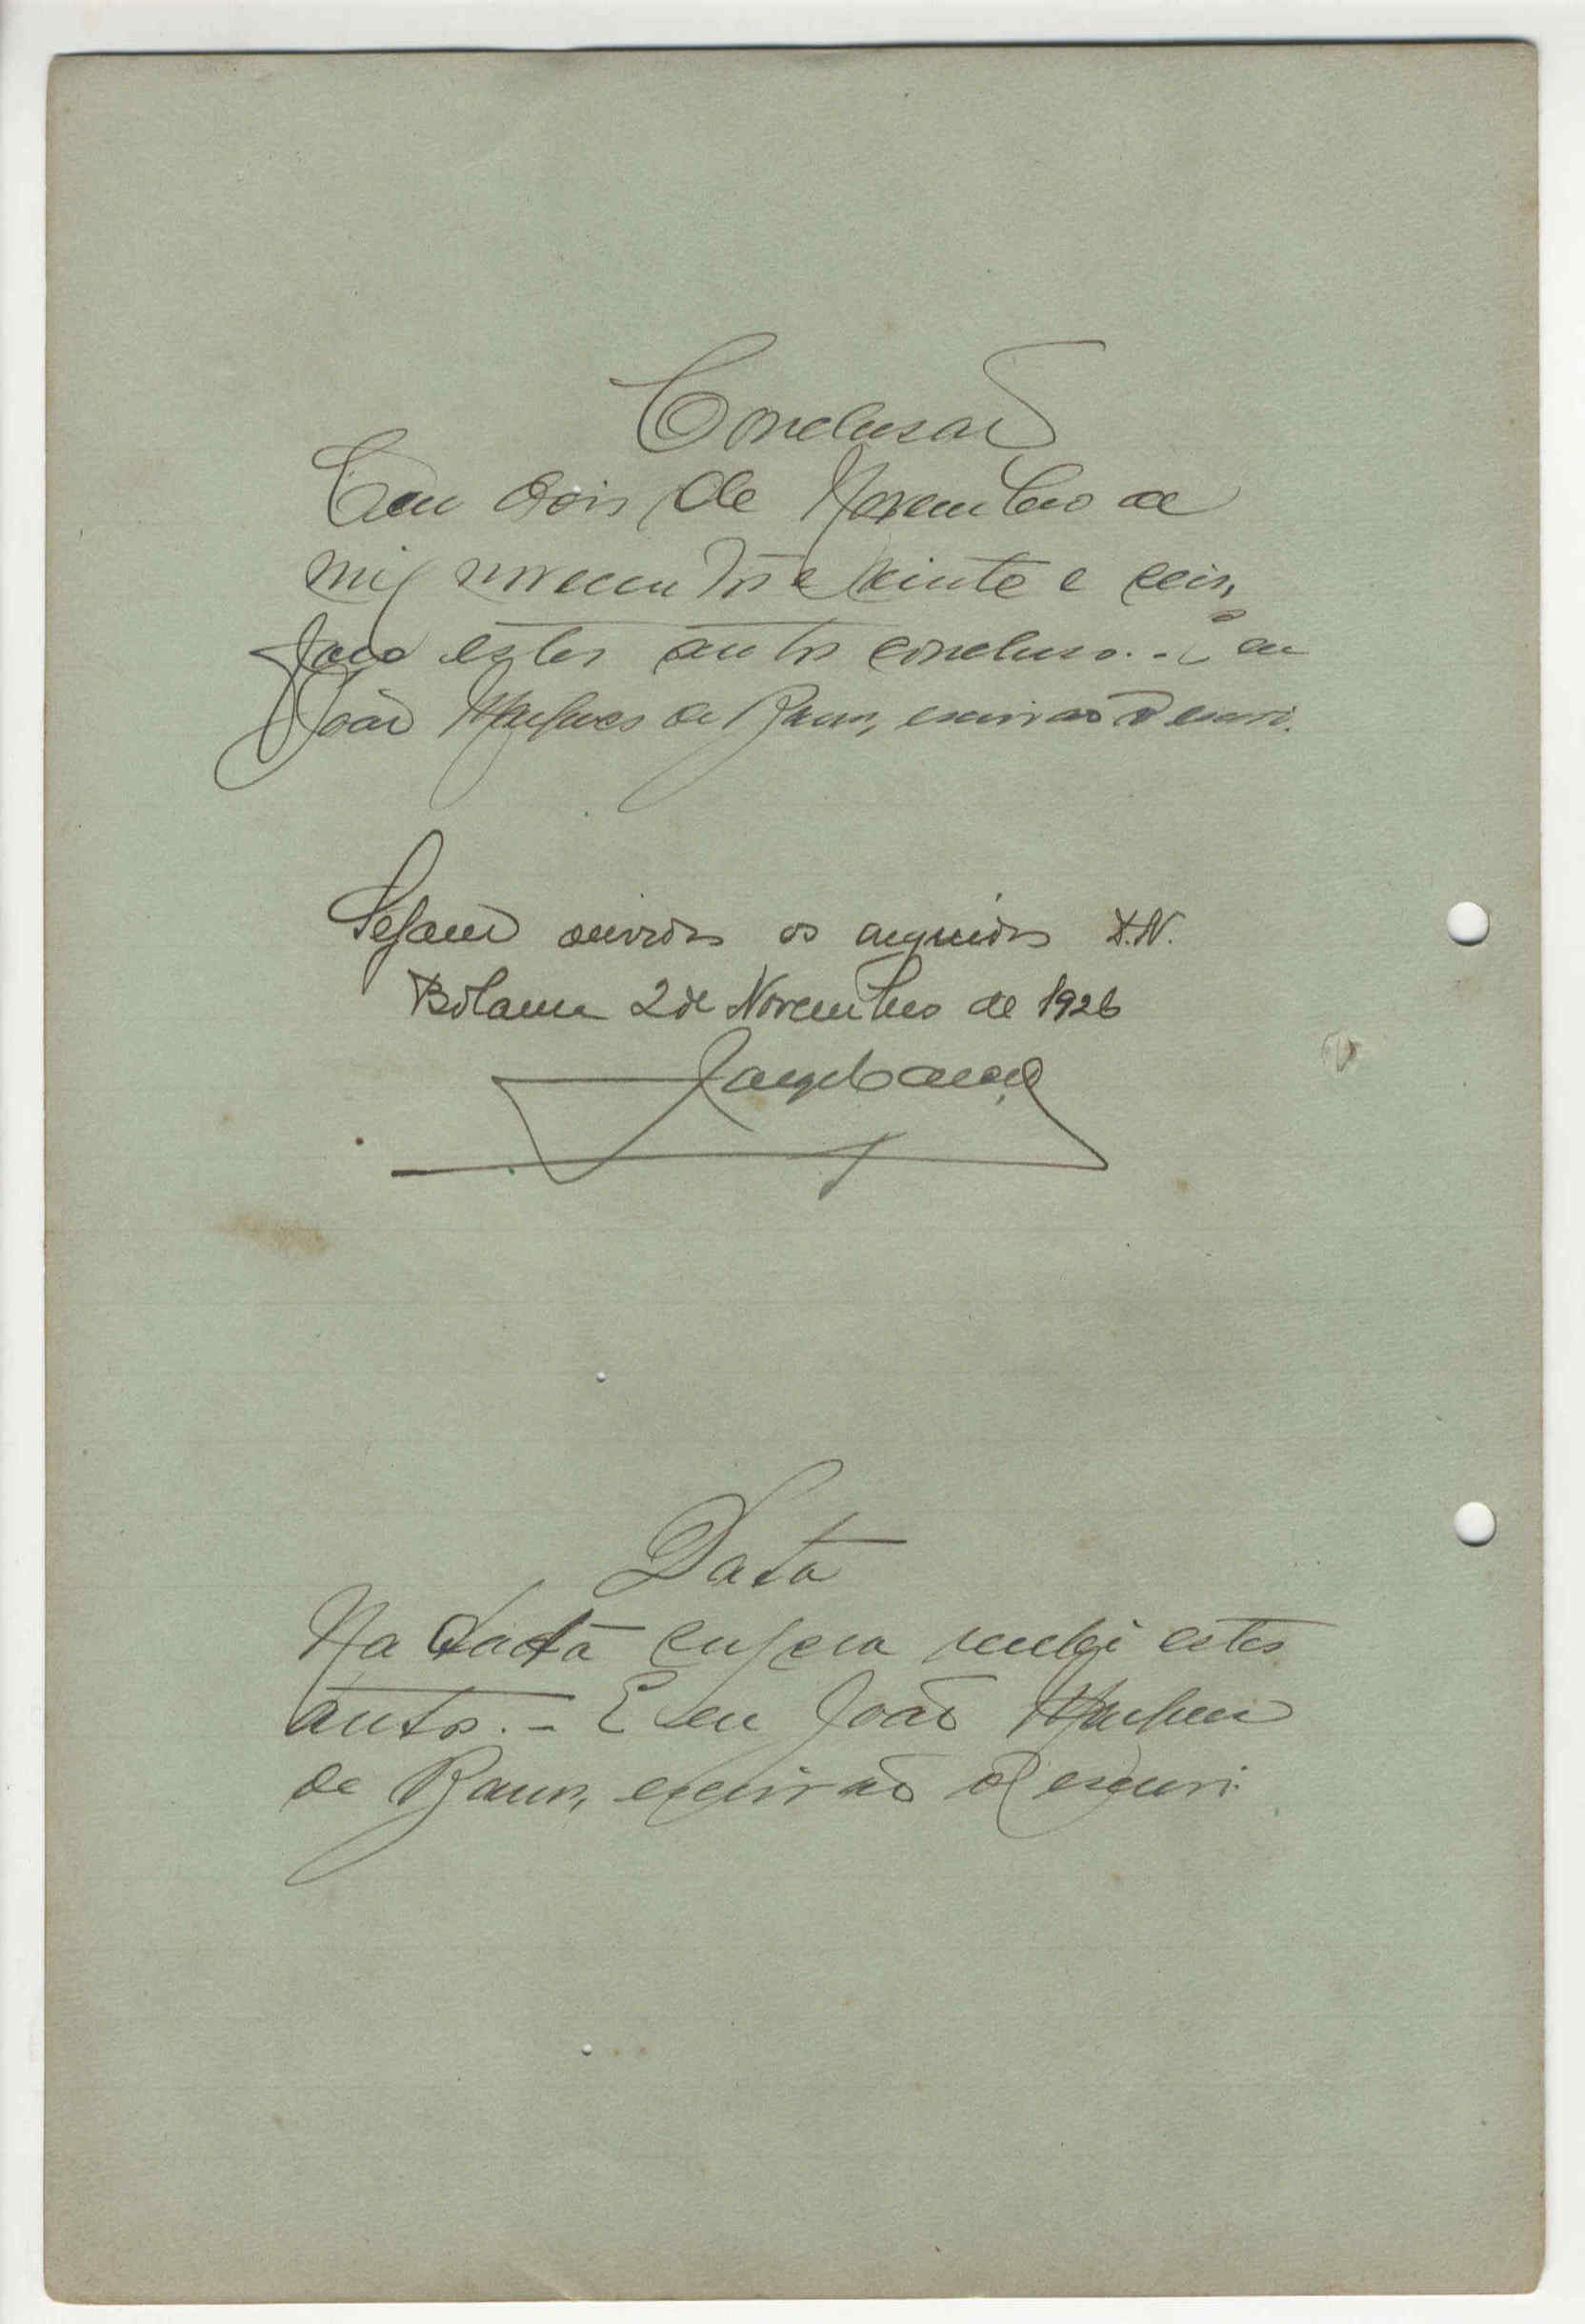 Conclusão
Em dois de Novembro de
mil novecentos e vinte e seis,
faço estes autos conclusos. - E eu
João Marques de Barros, escrivão o escrevi.
Sejam ouvidos os arguidos D.N.
Bolama 2 de Novembro de 1926
Data
Na data supra recebi estes
autos. - E eu João Marques
de Barros, escrivão o escrevi.